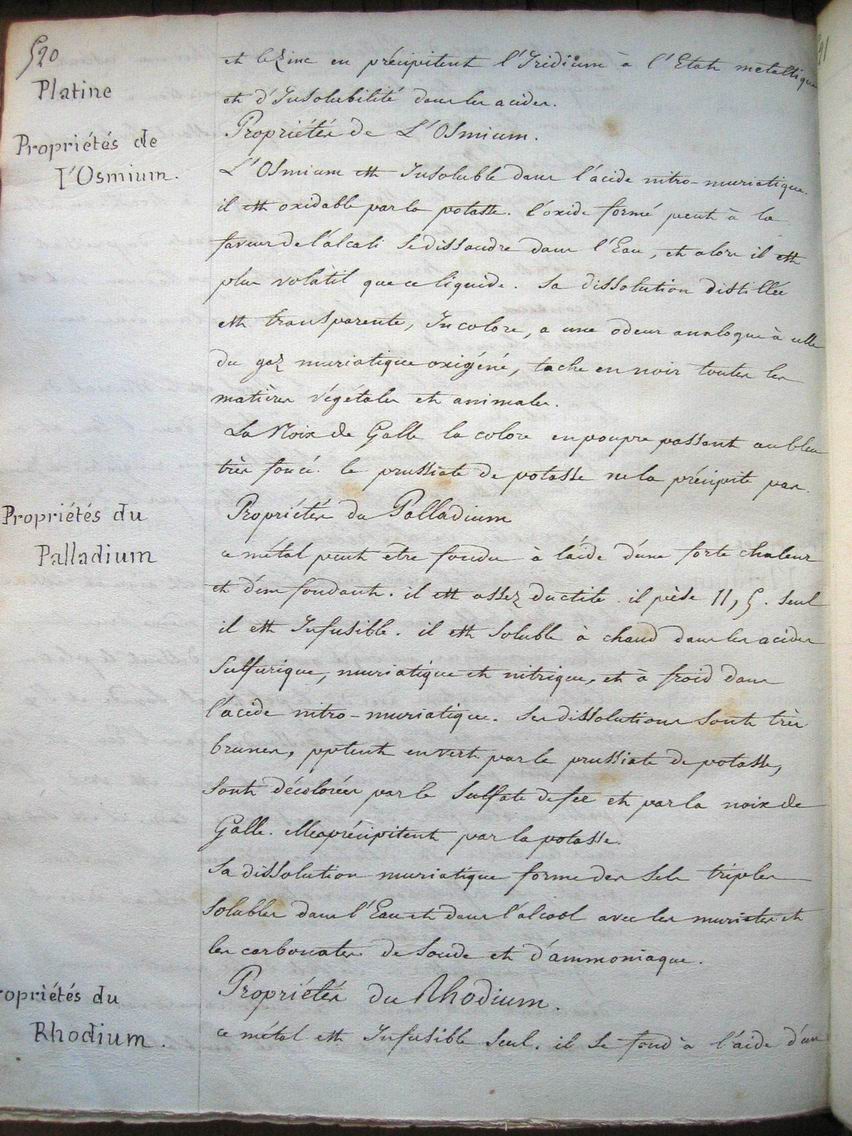 520
Platine
et le Zinc en précipitent l'Iridium à l'Etat metallique
et d'Insolubilité dans les acides.
Propriétés de
L'Osmium.
Propriétés de L'Osmium.
L'Osmium est Insoluble dans l'acide nitro-muriatique.
il est oxidable par la potasse. l'oxide formé peut à la
faveur de l'alcali se dissoudre dans l'Eau, et alors il est
plus volatil que ce liquide. Sa dissolution distillée
est transparente, Incolore, a une odeur analogue à celle
du gaz muriatique oxigéné, tache en noir toutes les
matières végétales et animales.
La Noix de Galle la colore en poupre passant au bleu
très foncé. le prussiate de potasse ne la précipite pas.
Propriétés du
Palladium
Propriétés du Palladium
ce métal peut être fondu à l'aide d'une forte chaleur
et d'un fondant. il est assez ductile. il pèse 11,5. seul
il est Infusible. il est soluble à chaud dans les acides
Sulfurique, muriatique et nitrique, et à froid dans
l'acide nitro-muriatique. Ses dissolutions sont très
brunes, pptent en vert par le prussiate de potasse,
sont décolorées par le Sulfate de fer et par la noix de
Galle. précipitent par la potasse.
Sa dissolution muriatique forme des Sels triples
Solubles dans l'Eau et dans l'alcool avec les muriates et
les carbonates de Soude et d'ammoniaque.
ropriétés du
Rhodium.
Propriétés du Rhodium.
ce métal est Infusible seul. il se fond à l'aide d'un